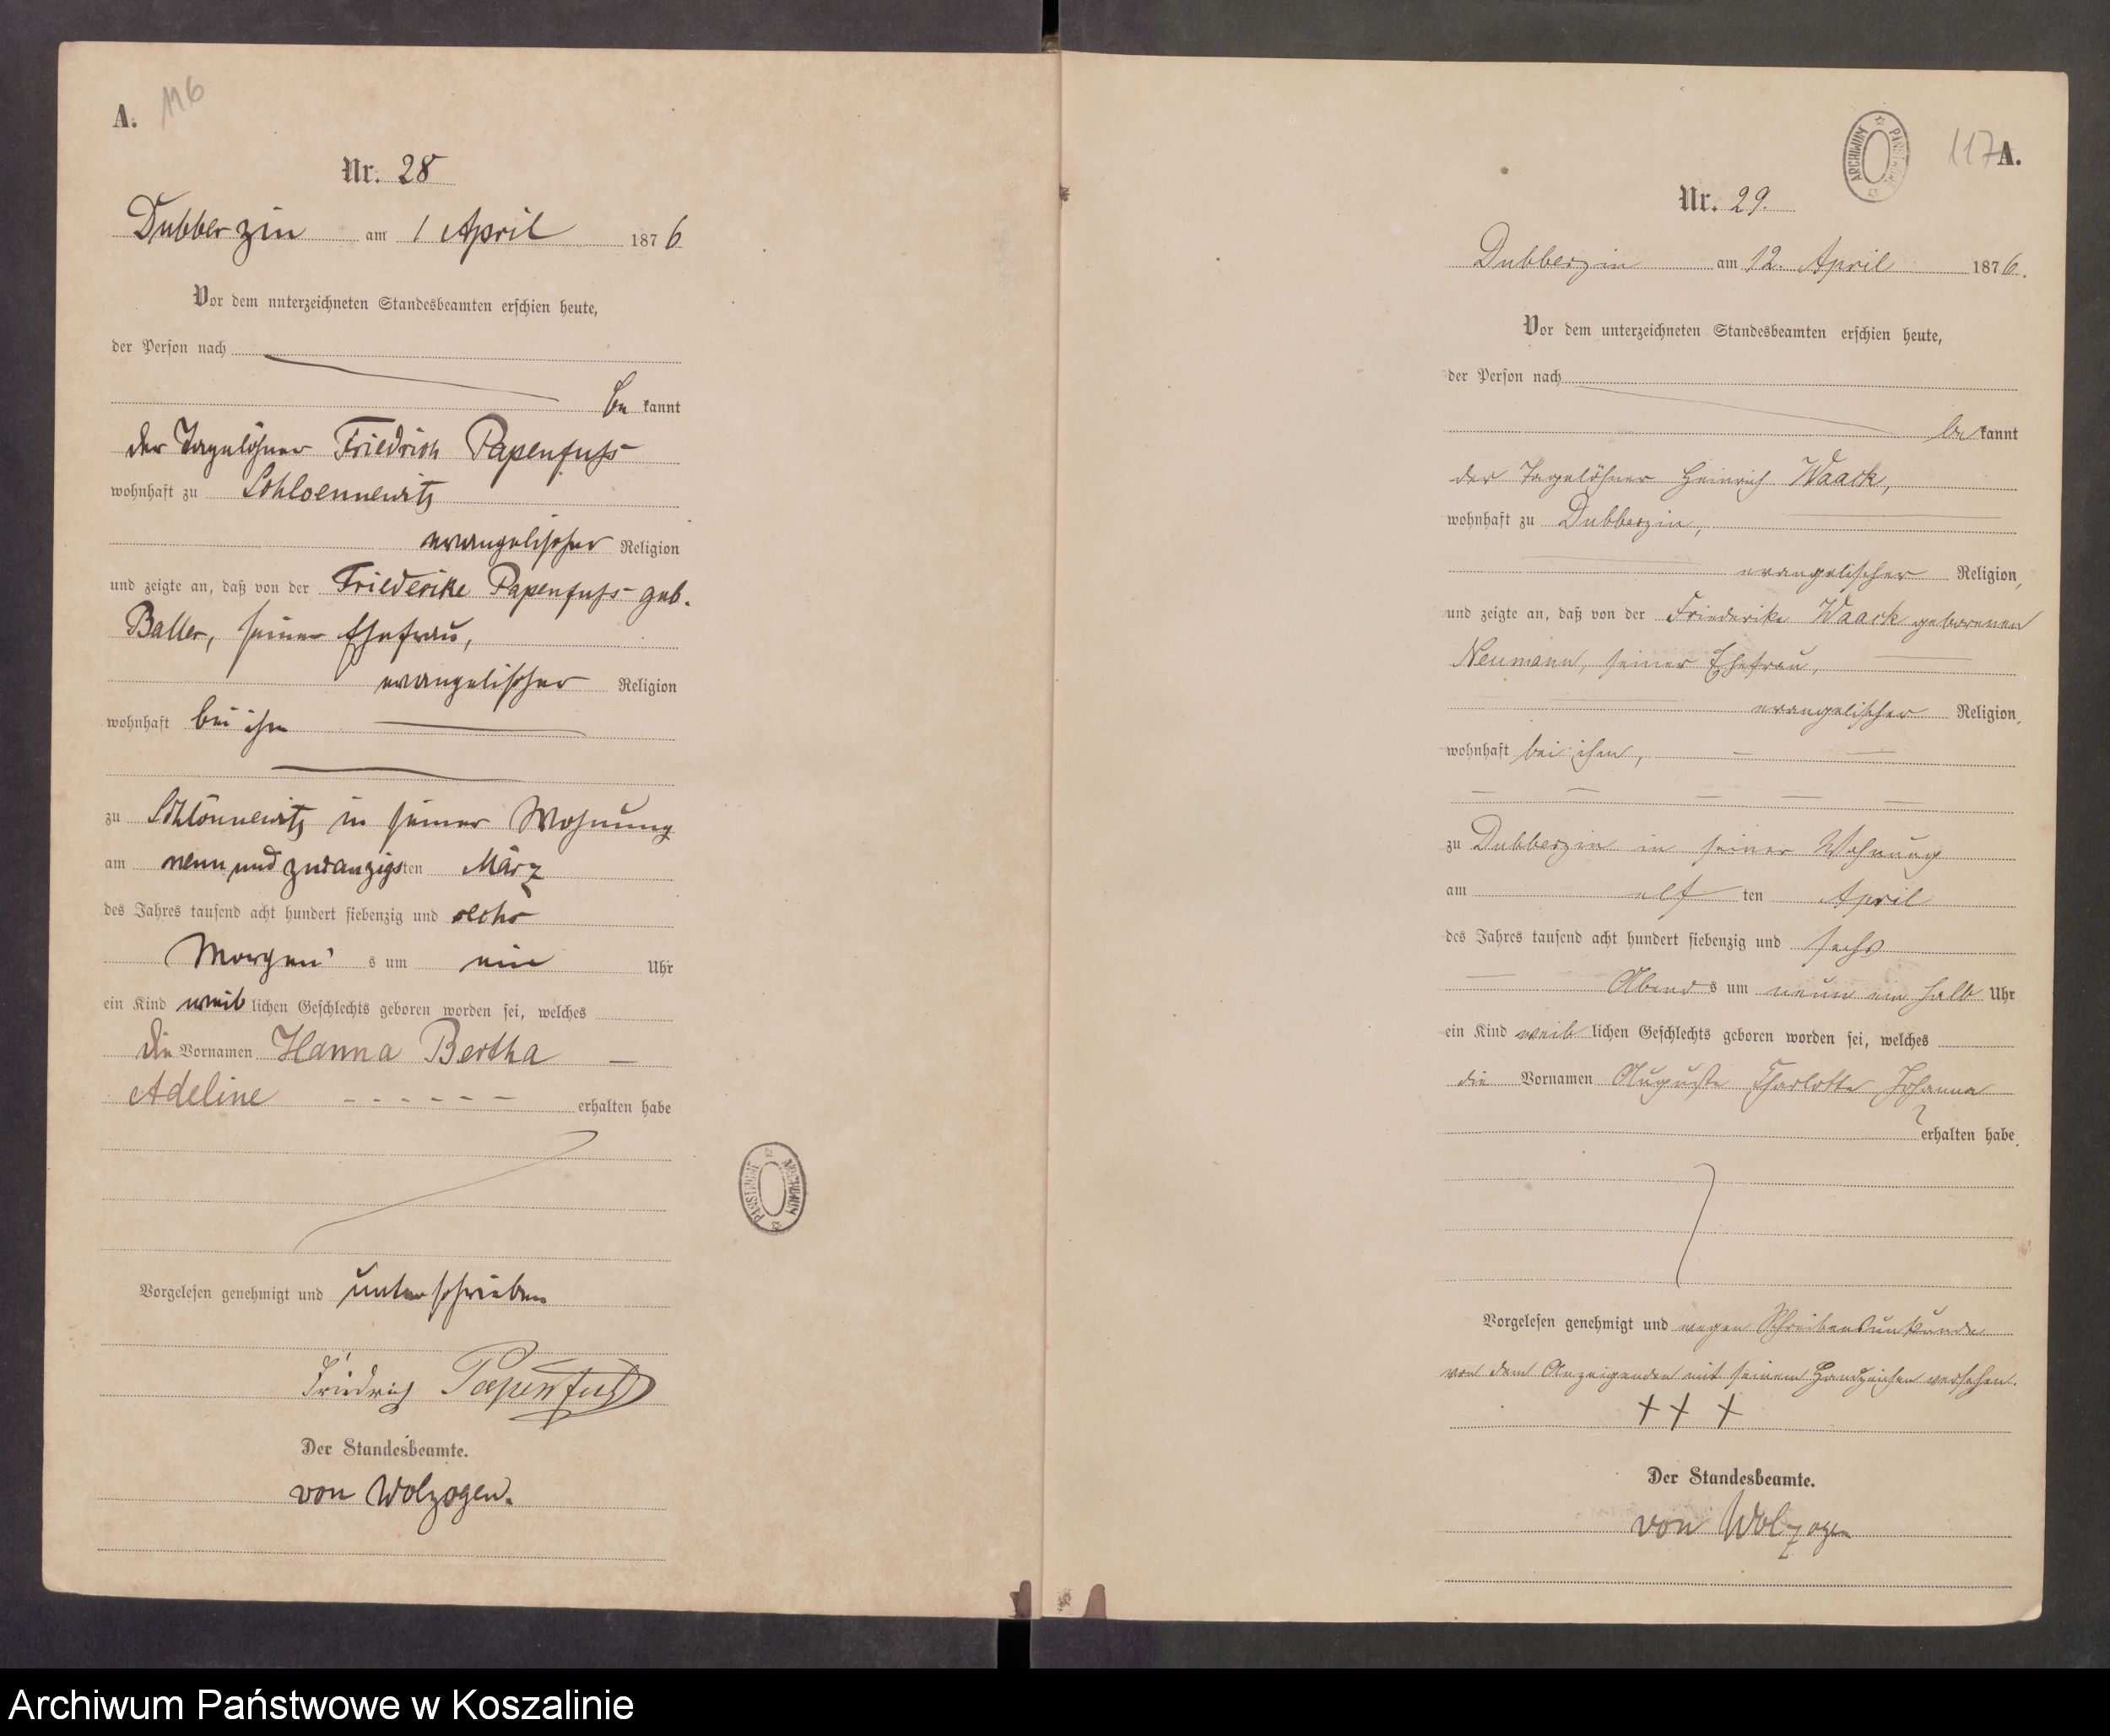 A. 116
Nr. 28
Dubberzin am 1 April 1876
Vor dem unterzeichneten Standesbeamten erschien heute,
der Person nach
be kannt
der Tagelöhner Friedrich Papenfuss
wohnhaft zu Schloennewitz
evangelischer Religion
und zeigte an, daß von der Friederike Papenfuss geb.
Baller, seiner Ehefrau,
evangelischer Religion
wohnhaft bei ihm
zu Schlönnewitz in seiner Wohnung
am neun und zwanzigsten März
des Jahres tausend acht hundert siebenzig und sechs
Morgen's um ein Uhr
ein Kind weiblichen Geschlechts geboren worden sei, welches
die Vornamen Hanna Bertha
Adeline erhalten habe
Vorgelesen genehmigt und unterschrieben
Friedrich Papenfuß
Der Standesbeamte.
von Wolzogen.
ARCHIWUM PAŃSTWOWE
ARCHIWUM PAŃSTWOWE
117 A.
Nr. 29.
Dubberzin am 12. April 1876.
Vor dem unterzeichneten Standesbeamten erschien heute,
der Person nach
be kannt
der Tagelöhner Heinrich Waack,
wohnhaft zu Dubberzin,
evangelischer Religion,
und zeigte an, daß von der Friederike Waack geborenen
Neumann, seiner Ehefrau,
evangelischer Religion,
wohnhaft bei ihm,
zu Dubberzin in seiner Wohnung
am elf ten April
des Jahres tausend acht hundert siebenzig und sechs
Abends um neun ein halb Uhr
ein Kind weiblichen Geschlechts geboren worden sei, welches
die Vornamen Auguste Charlotte Johanna
erhalten habe.
Vorgelesen genehmigt und wegen Schreibensunkunde
von dem Anzeigenden mit seinem Handzeichen versehen.
+ + +
Der Standesbeamte.
von Wolzogen
Archiwum Państwowe w Koszalinie